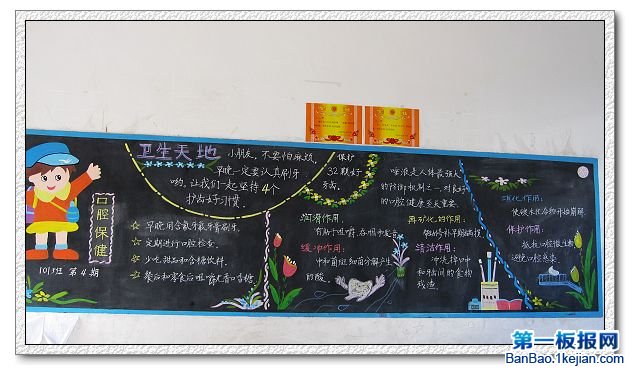 卫生天地
小朋友，不要怕麻烦，
早晚一定要认真刷牙
哟。让我们一起坚持4个
护齿好习惯。
口腔保健
101班 第4期
早晚用含氟牙膏刷牙。
定期进行口腔检查。
少吃甜品和含糖饮料。
餐后和零食后咀嚼木糖口香糖。
保护
32颗好
牙齿。
润滑作用：
有助于咀嚼、吞咽和发音
缓冲作用：
中和菌斑细菌分解产生
的酸。
唾液是人体最强大
的防御机制之一，对良好
的口腔健康至关重要。
再矿化的作用：
能够修补早期龋齿
清洁作用：
冲洗掉口中
和牙间的食物
残渣。
消化作用：
使碳水化合物开始崩解。
保护作用：
抵抗口腔微生物
避免口腔感染
第一板报网
BanBao.1kejian.com